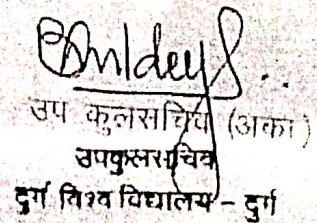 उप कुलसचिव (अका)
उपकुलसचिव
दुर्ग विश्व विद्यालय - दुर्ग